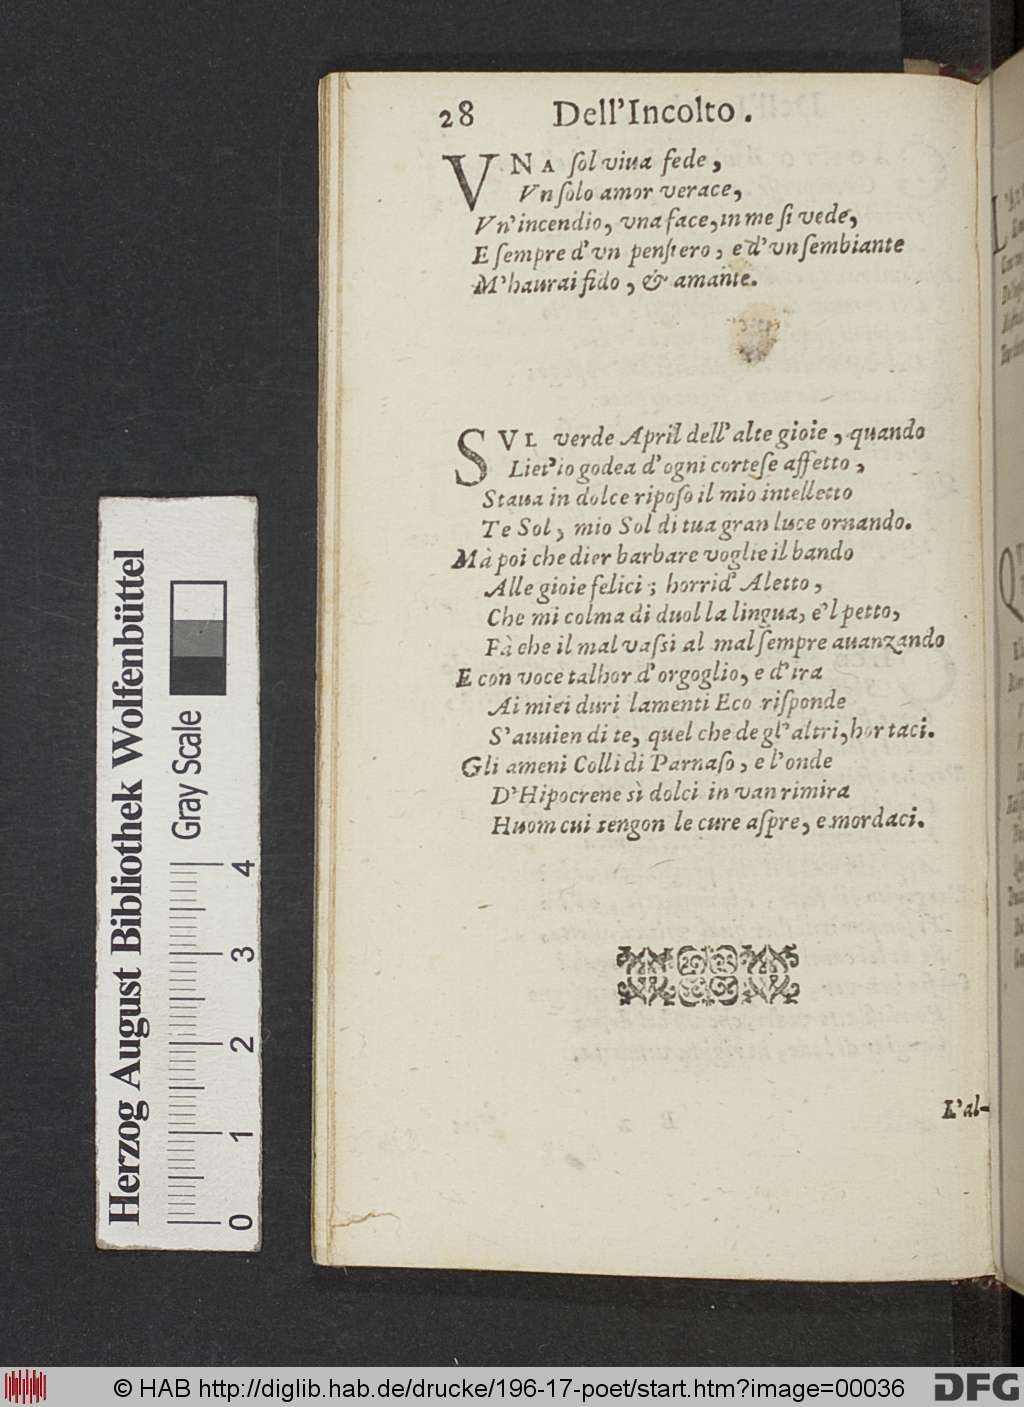 28 Dell'Incolto.
VNA ſol viua fede,
Vn ſolo amor verace,
Vn'incendio, vna face, in me ſi vede,
E ſempre d'vn penſiero, e d'vn ſembiante
M'haurai fido, & amante.
SVL verde April dell'alte gioie, quando
Liet'io godea d'ogni corteſe affetto,
Staua in dolce ripoſo il mio intelletto
Te Sol, mio Sol di tua gran luce ornando.
Mà poi che dier barbare voglie il bando
Alle gioie felici; horrid' Aletto,
Che mi colma di duol la lingua, e'l petto,
Fà che il mal vaſsi al mal ſempre auanzando
E con voce talhor d'orgoglio, e d'ira
Ai miei duri lamenti Eco riſponde
S'auuien di te, quel che de gl'altri, hor taci.
Gli ameni Colli di Parnaſo, e l'onde
D'Hipocrene sì dolci in van rimira
Huom cui tengon le cure aſpre, e mordaci.
L'al-
Herzog August Bibliothek Wolfenbüttel
Gray Scale
0 1 2 3 4
© HAB http://diglib.hab.de/drucke/196-17-poet/start.htm?image=00036
DFG